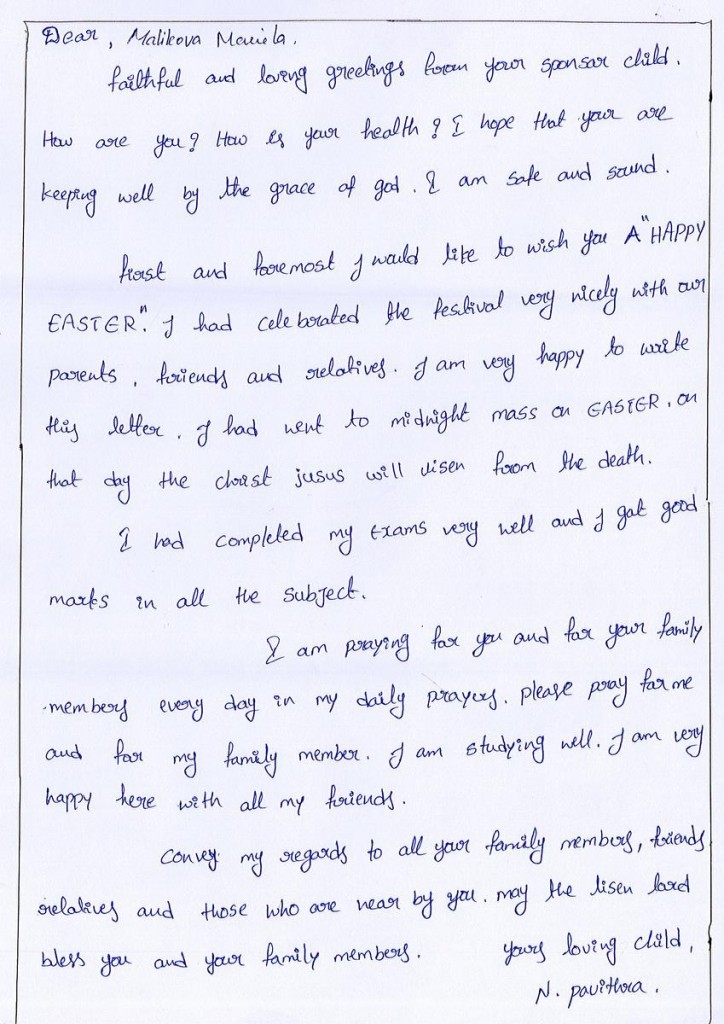 Dear, Malikova Maniola.
faithful and loving greetings from your sponsar child.
How are you? How is your health? I hope that your are
keeping well by the grace of god. I am safe and sound.
first and foremost I would like to wish you A "HAPPY
EASTER". I had celebrated the festival very nicely with our
parents, friends and relatives. I am very happy to write
this letter. I had went to midnight mass on EASTER. on
that day the christ jusus will risen from the death.
I had completed my Exams very well and I got good
marks in all the subject.
I am praying for you and for your family
members every day in my daily prayers. please pray for me
and for my family member. I am studying well. I am very
happy here with all my friends.
convey my regards to all your family members, friends
relatives and those who are near by you. may the risen lord
bless you and your family members. yours loving child,
N. pavithra.